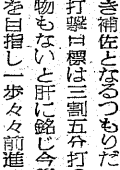 き補佐となるつもりだ
打撃目標は三割五分打
物もないと肝に銘じ今
を目指し一歩々々前進